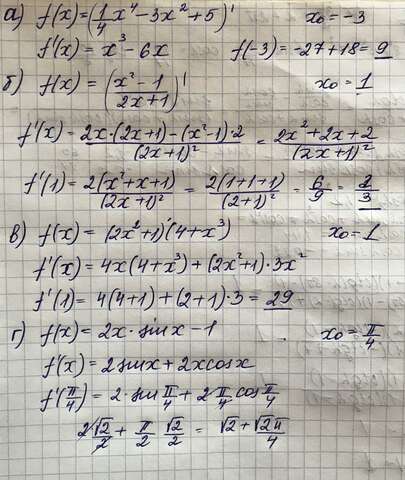 а) f(x)=(1/4 x⁴-3x²+5)' x₀=-3
f'(x)=x³-6x f(-3)=-27+18=9
б) f(x)=((x²-1)/(2x+1))' x₀=1
f'(x)=(2x·(2x+1)-(x²-1)·2)/(2x+1)²=(2x²+2x+2)/(2x+1)²
f'(1)=2(x²+x+1)/(2x+1)²=2(1+1+1)/(2+1)²=6/9=2/3
в) f(x)=(2x²+1)'(4+x³) x₀=1
f'(x)=4x(4+x³)+(2x²+1)·3x²
f'(1)=4(4+1)+(2+1)·3=29
г) f(x)=2x·sinx-1 x₀=π/4
f'(x)=2sinx+2xcosx
f'(π/4)=2·sin π/4+2 π/4 cos π/4
2√2/2+π/2 √2/2=√2+√2π/4